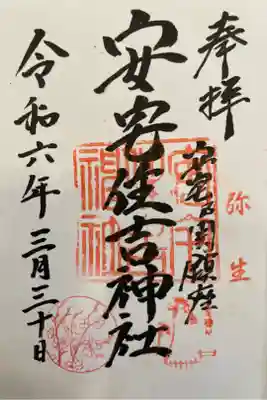 奉拝
弥生
安宅 関鎮座
安宅住吉神社
令和六年三月三十日